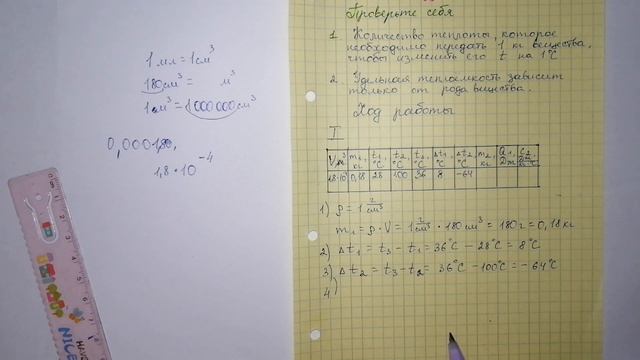 1 мл = 1 см³
180 см³ = м³
1 м³ = 1000000 см³
0,000180,
1,8 · 10⁻⁴
Проверьте себя
1. Количество теплоты, которое
необходимо передать 1 кг вещества,
чтобы изменить его t на 1°C
2. Удельная теплоёмкость зависит
только от рода вещества.
Ход работы
I
V, м³ m₁, кг t₁, °C t₂, °C t₃, °C Δt₁, °C Δt₂, °C m₂, кг Q₁, Дж C₂,
1,8·10⁻⁴ 0,18 28 100 36 8 -64
1) ρ = 1 г/см³
m₁ = ρ · V = 1 г/см³ · 180 см³ = 180 г = 0,18 кг
2) Δt₁ = t₃ - t₁ = 36°C - 28°C = 8°C
3) Δt₂ = t₃ - t₂ = 36°C - 100°C = -64°C
4)
NICE